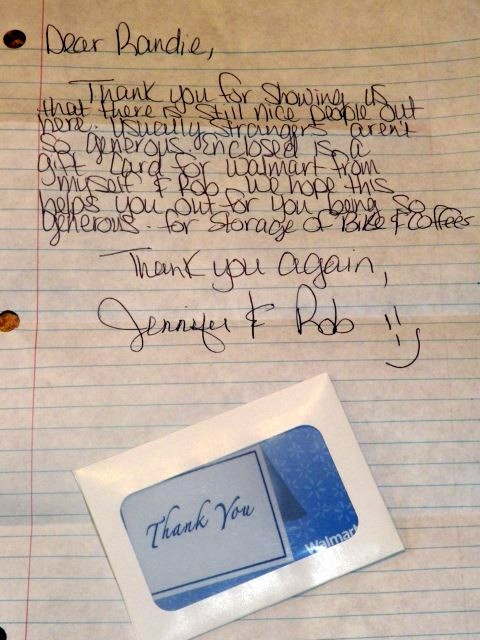 Dear Randie,
Thank you for showing us
that there is still nice people out
here. Usually strangers aren't
so generous. Enclosed is a
gift card for walmart from
myself & Rob. We hope this
helps you out for you being so
generous. for storage of Bike & Coffees
Thank you again,
Jennifer & Rob
Thank You
Walmart